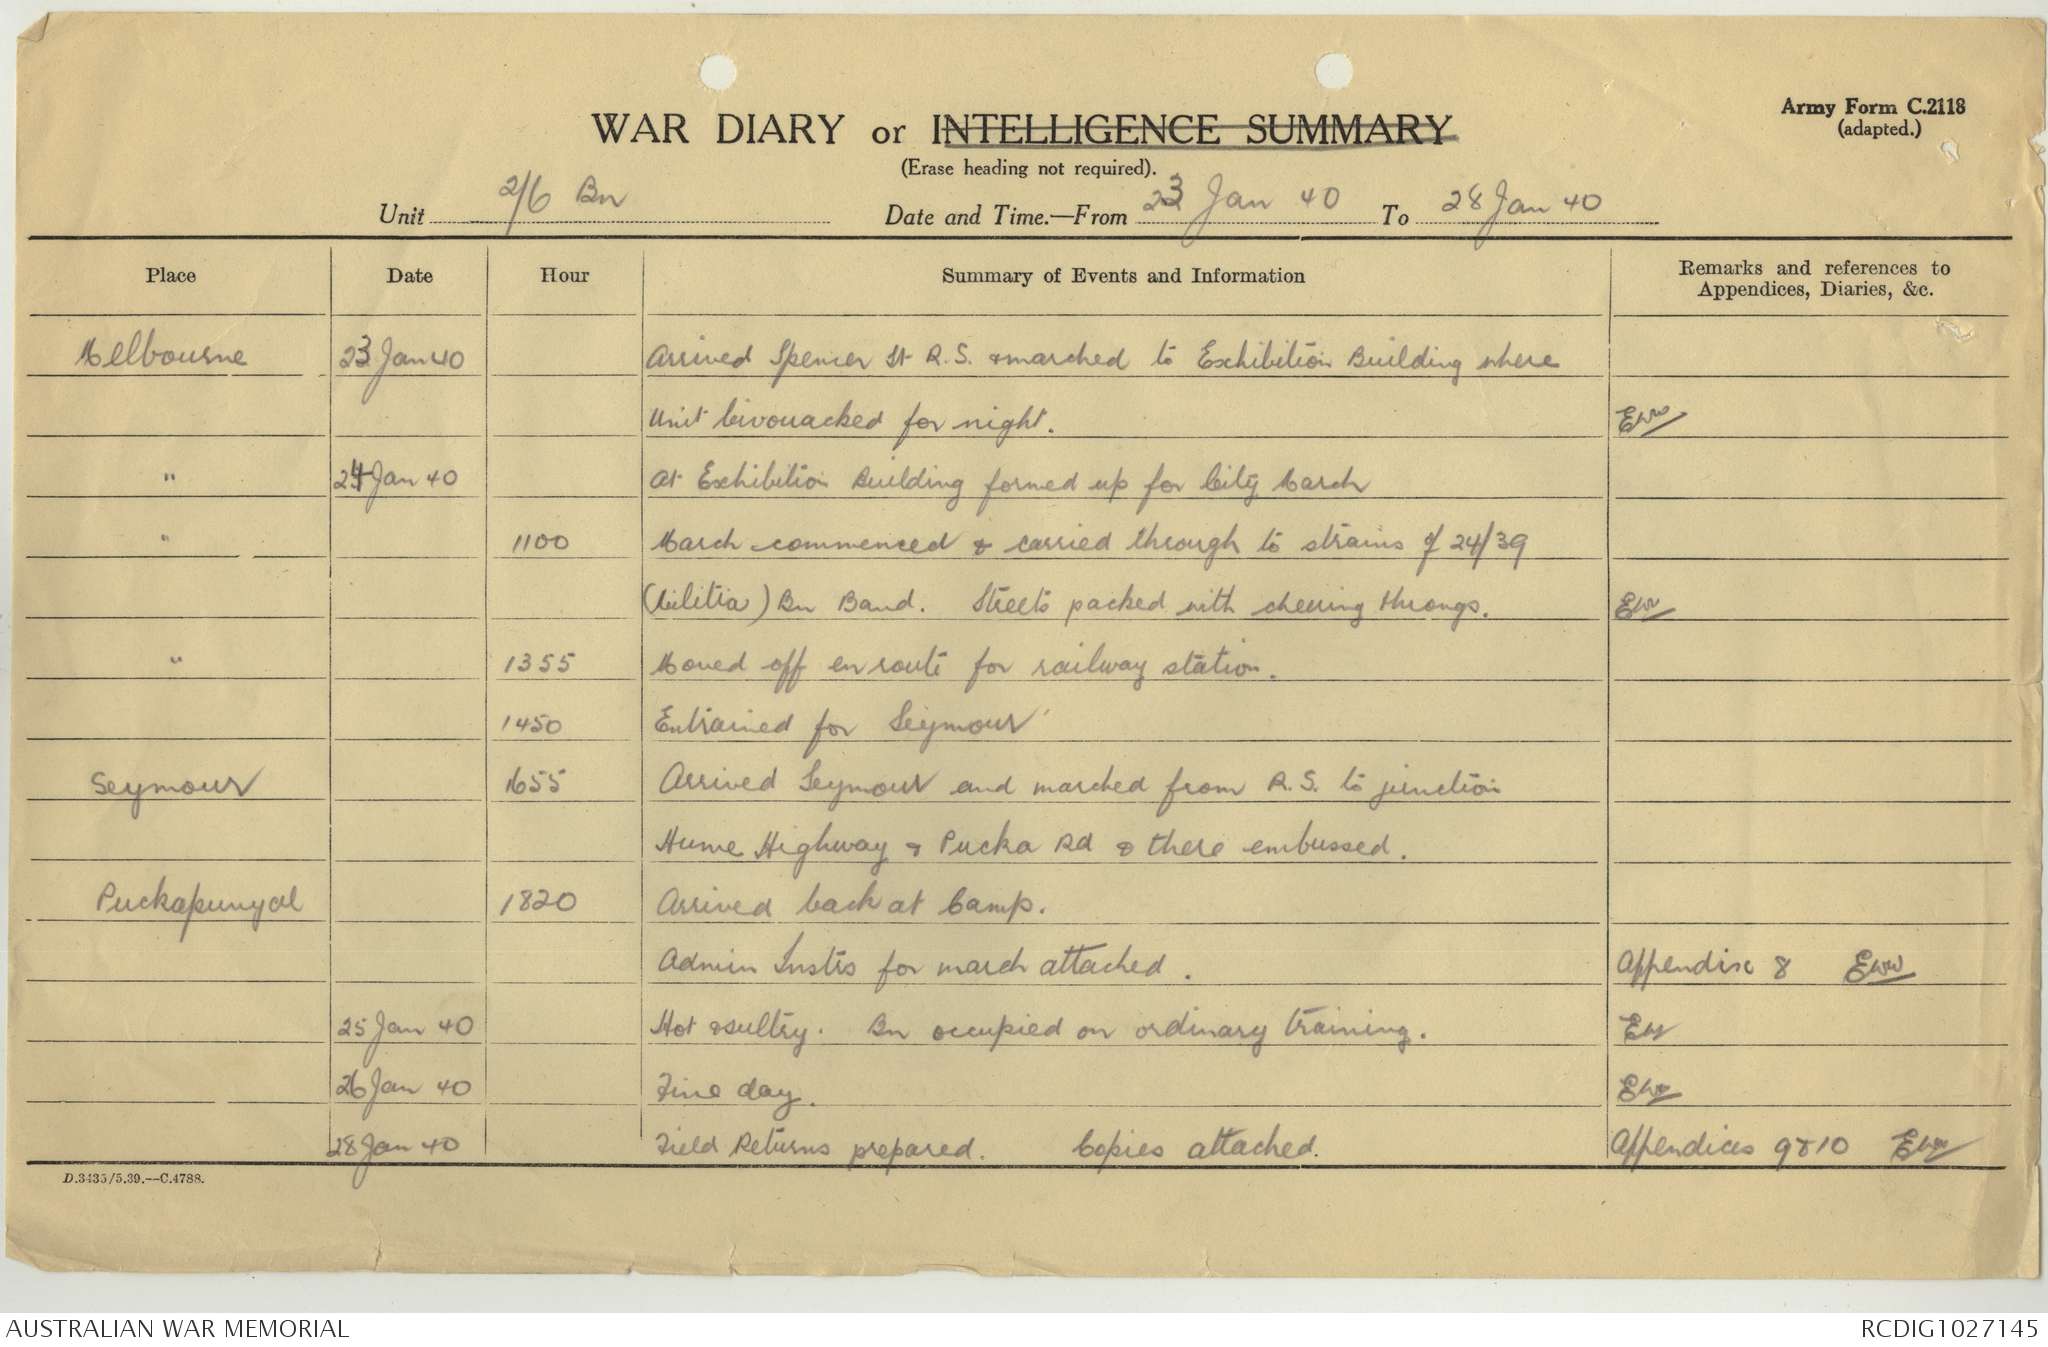 Army Form C.2118
(adapted.)
WAR DIARY or INTELLIGENCE SUMMARY
(Erase heading not required).
Unit 2/6 Bn Date and Time.—From 23 Jan 40 To 28 Jan 40
Place Date Hour Summary of Events and Information Remarks and references to Appendices, Diaries, &c.
Melbourne 23 Jan 40 Arrived Spencer St R.S. & marched to Exhibition Building where
Unit bivouacked for night. EWW
" 24 Jan 40 At Exhibition Building formed up for City March
" 1100 March commenced & carried through to strains of 24/39
(Militia) Bn Band. Streets packed with cheering throngs. EWW
" 1355 Moved off en route for railway station.
1450 Entrained for Seymour
Seymour 1655 Arrived Seymour and marched from R.S. to junction
Hume Highway & Pucka Rd & there embussed.
Puckapunyal 1820 Arrived back at Camp.
Admin Instrs for march attached. Appendix 8 EWW
25 Jan 40 Hot & sultry. Bn occupied on ordinary training. EW
26 Jan 40 Fine day. EWW
28 Jan 40 Field Returns prepared. Copies attached. Appendices 9 & 10 EWW
D.3435/5.39.—C.4788.
AUSTRALIAN WAR MEMORIAL RCDIG1027145